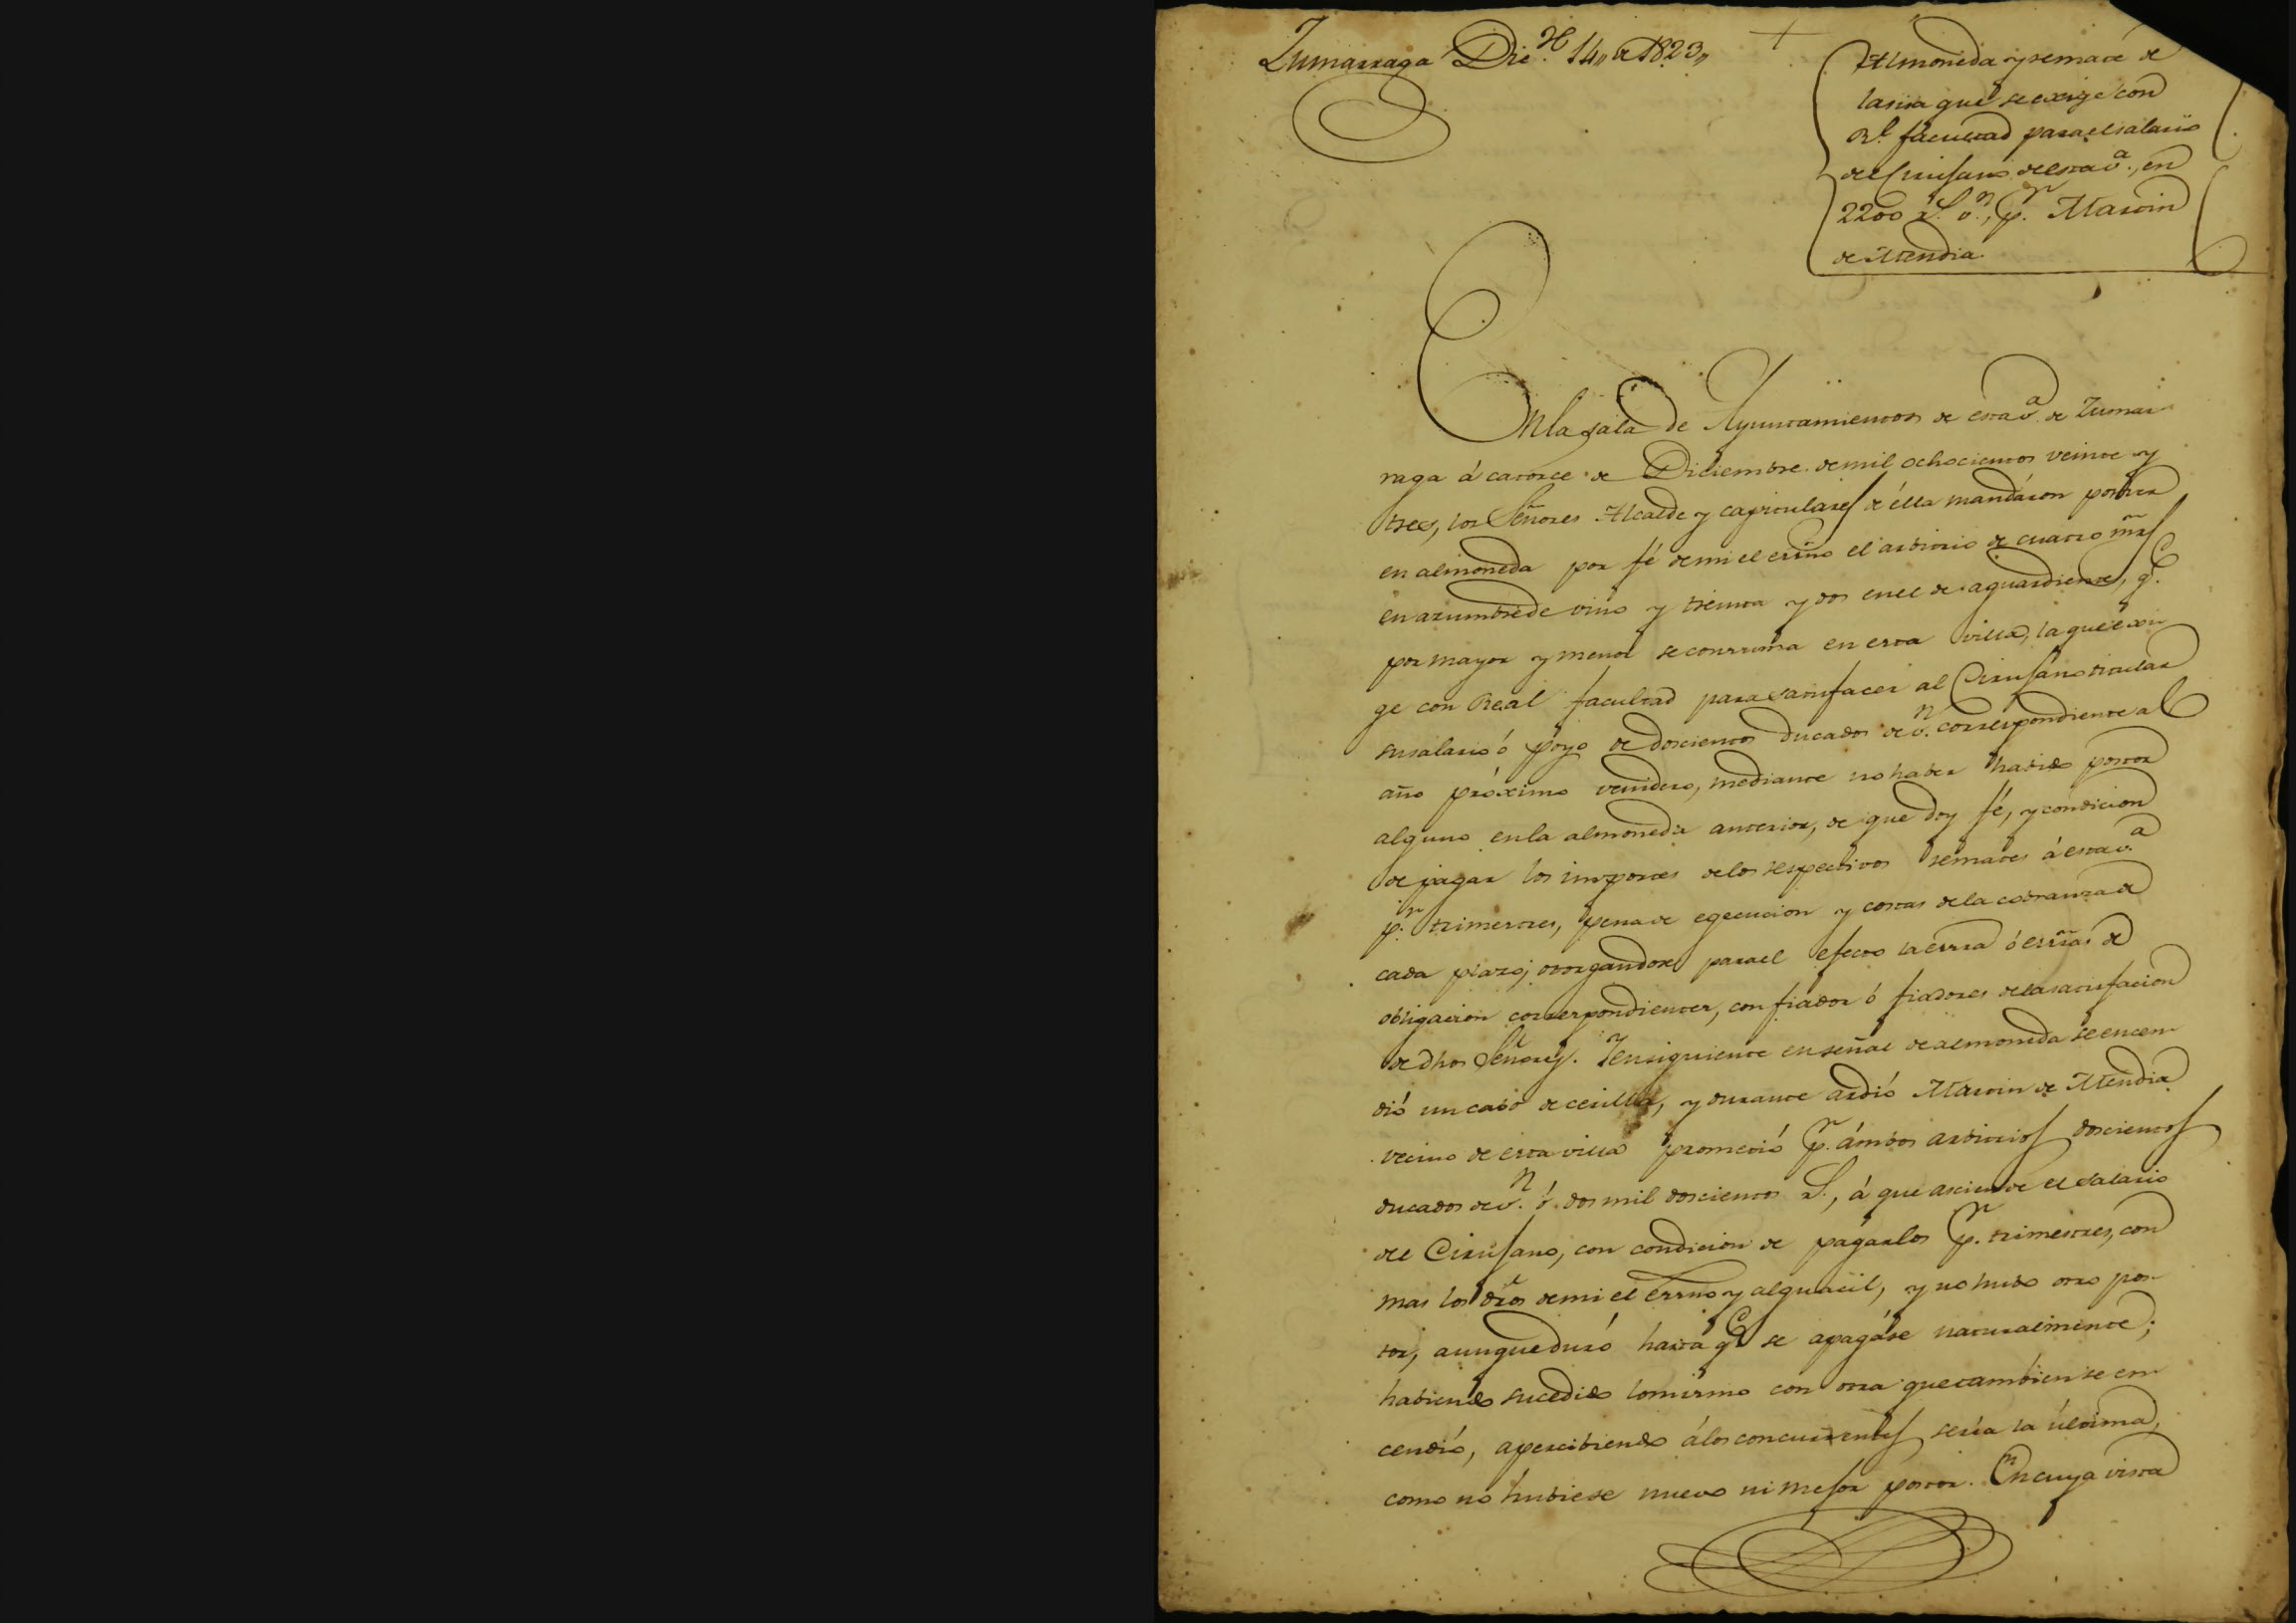 Zumarraga Dice. 14,, de 1823,,
Almoneda y remate de
la sisa que se exige con
Rl. facultad para el salario
del Cirujano de esta va., en
2200 rs. vn., pr. Martin
de Mendia.
En la sala de Ayuntamientos de esta va. de Zumar
raga á catorce de Diciembre de mil ochocientos veinte y
tres, los Señores Alcalde y capitulares de élla mandáron poner
en almoneda por fé de mi el essno el arbitrio de cuatro mrs
en azumbre de vino y treinta y dos en el de aguardiente, qe.
por mayor y menor se consuma en esta villa, la que se exi
ge con Real facultad para satisfacer al Cirujano titular
su salario ó poyo de doscientos ducados de vn. correspondiente al
año próximo venidero, mediante no haber habido postor
alguno en la almoneda anterior, de que doy fé, y condicion
de pagar los importes de los respectivos remates á esta va.
pr. trimestres, pena de egecucion y costas de la cobranza de
cada plazo; otorgandose para el efecto la essra ó essras de
obligacion correspondientes, con fiador ó fiadores de la satisfacion
de dhos Señores. I en siguiente en señal de almoneda se encen
dió un cabo de cerilla, y durante ardió Martin de Mendia
vecino de esta villa prometió pr. ámbos arbitrios doscientos
ducados de vn. ó dos mil doscientos rs., á que asciende el salario
del Cirujano, con condicion de pagarlos pr. trimestres, con
mas los dros de mi el Essno y alguacil, y no hubo otro pos
tor, aunque duró hasta qe. se apagáse naturalmente;
habiendo sucedido lo mismo con otra que tambien se en
cendió, apercibiendo á los concurrentes sería la última,
como no hubiese nuevo ni mejor postor. En cuya vista